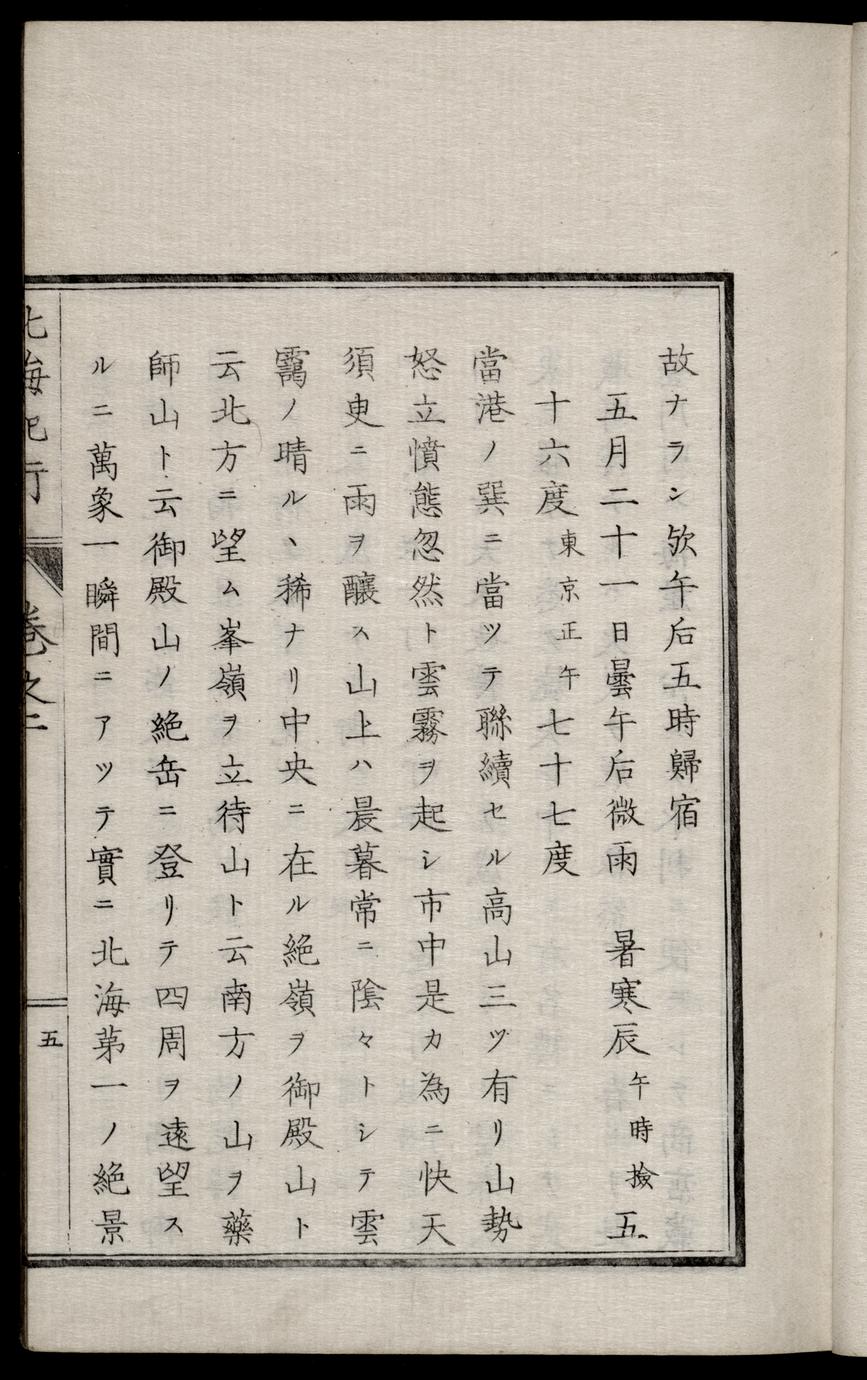 故ナラン欤午后五時歸宿
五月二十一日曇午后微雨　暑寒辰午時撿五
十六度東京正午七十七度
當港ノ巽ニ當ツテ聯續セル高山三ツ有リ山勢
怒立憤態忽然ト雲霧ヲ起シ市中是カ為ニ快天
須臾ニ雨ヲ釀ス山上ハ晨暮常ニ陰々トシテ雲
靄ノ晴ルヽ稀ナリ中央ニ在ル絶嶺ヲ御殿山ト
云北方ニ望ム峯嶺ヲ立待山ト云南方ノ山ヲ藥
師山ト云御殿山ノ絶岳ニ登リテ四周ヲ遠望ス
ルニ萬象一瞬間ニアツテ實ニ北海苐一ノ絶景
北海紀行
卷之二
五